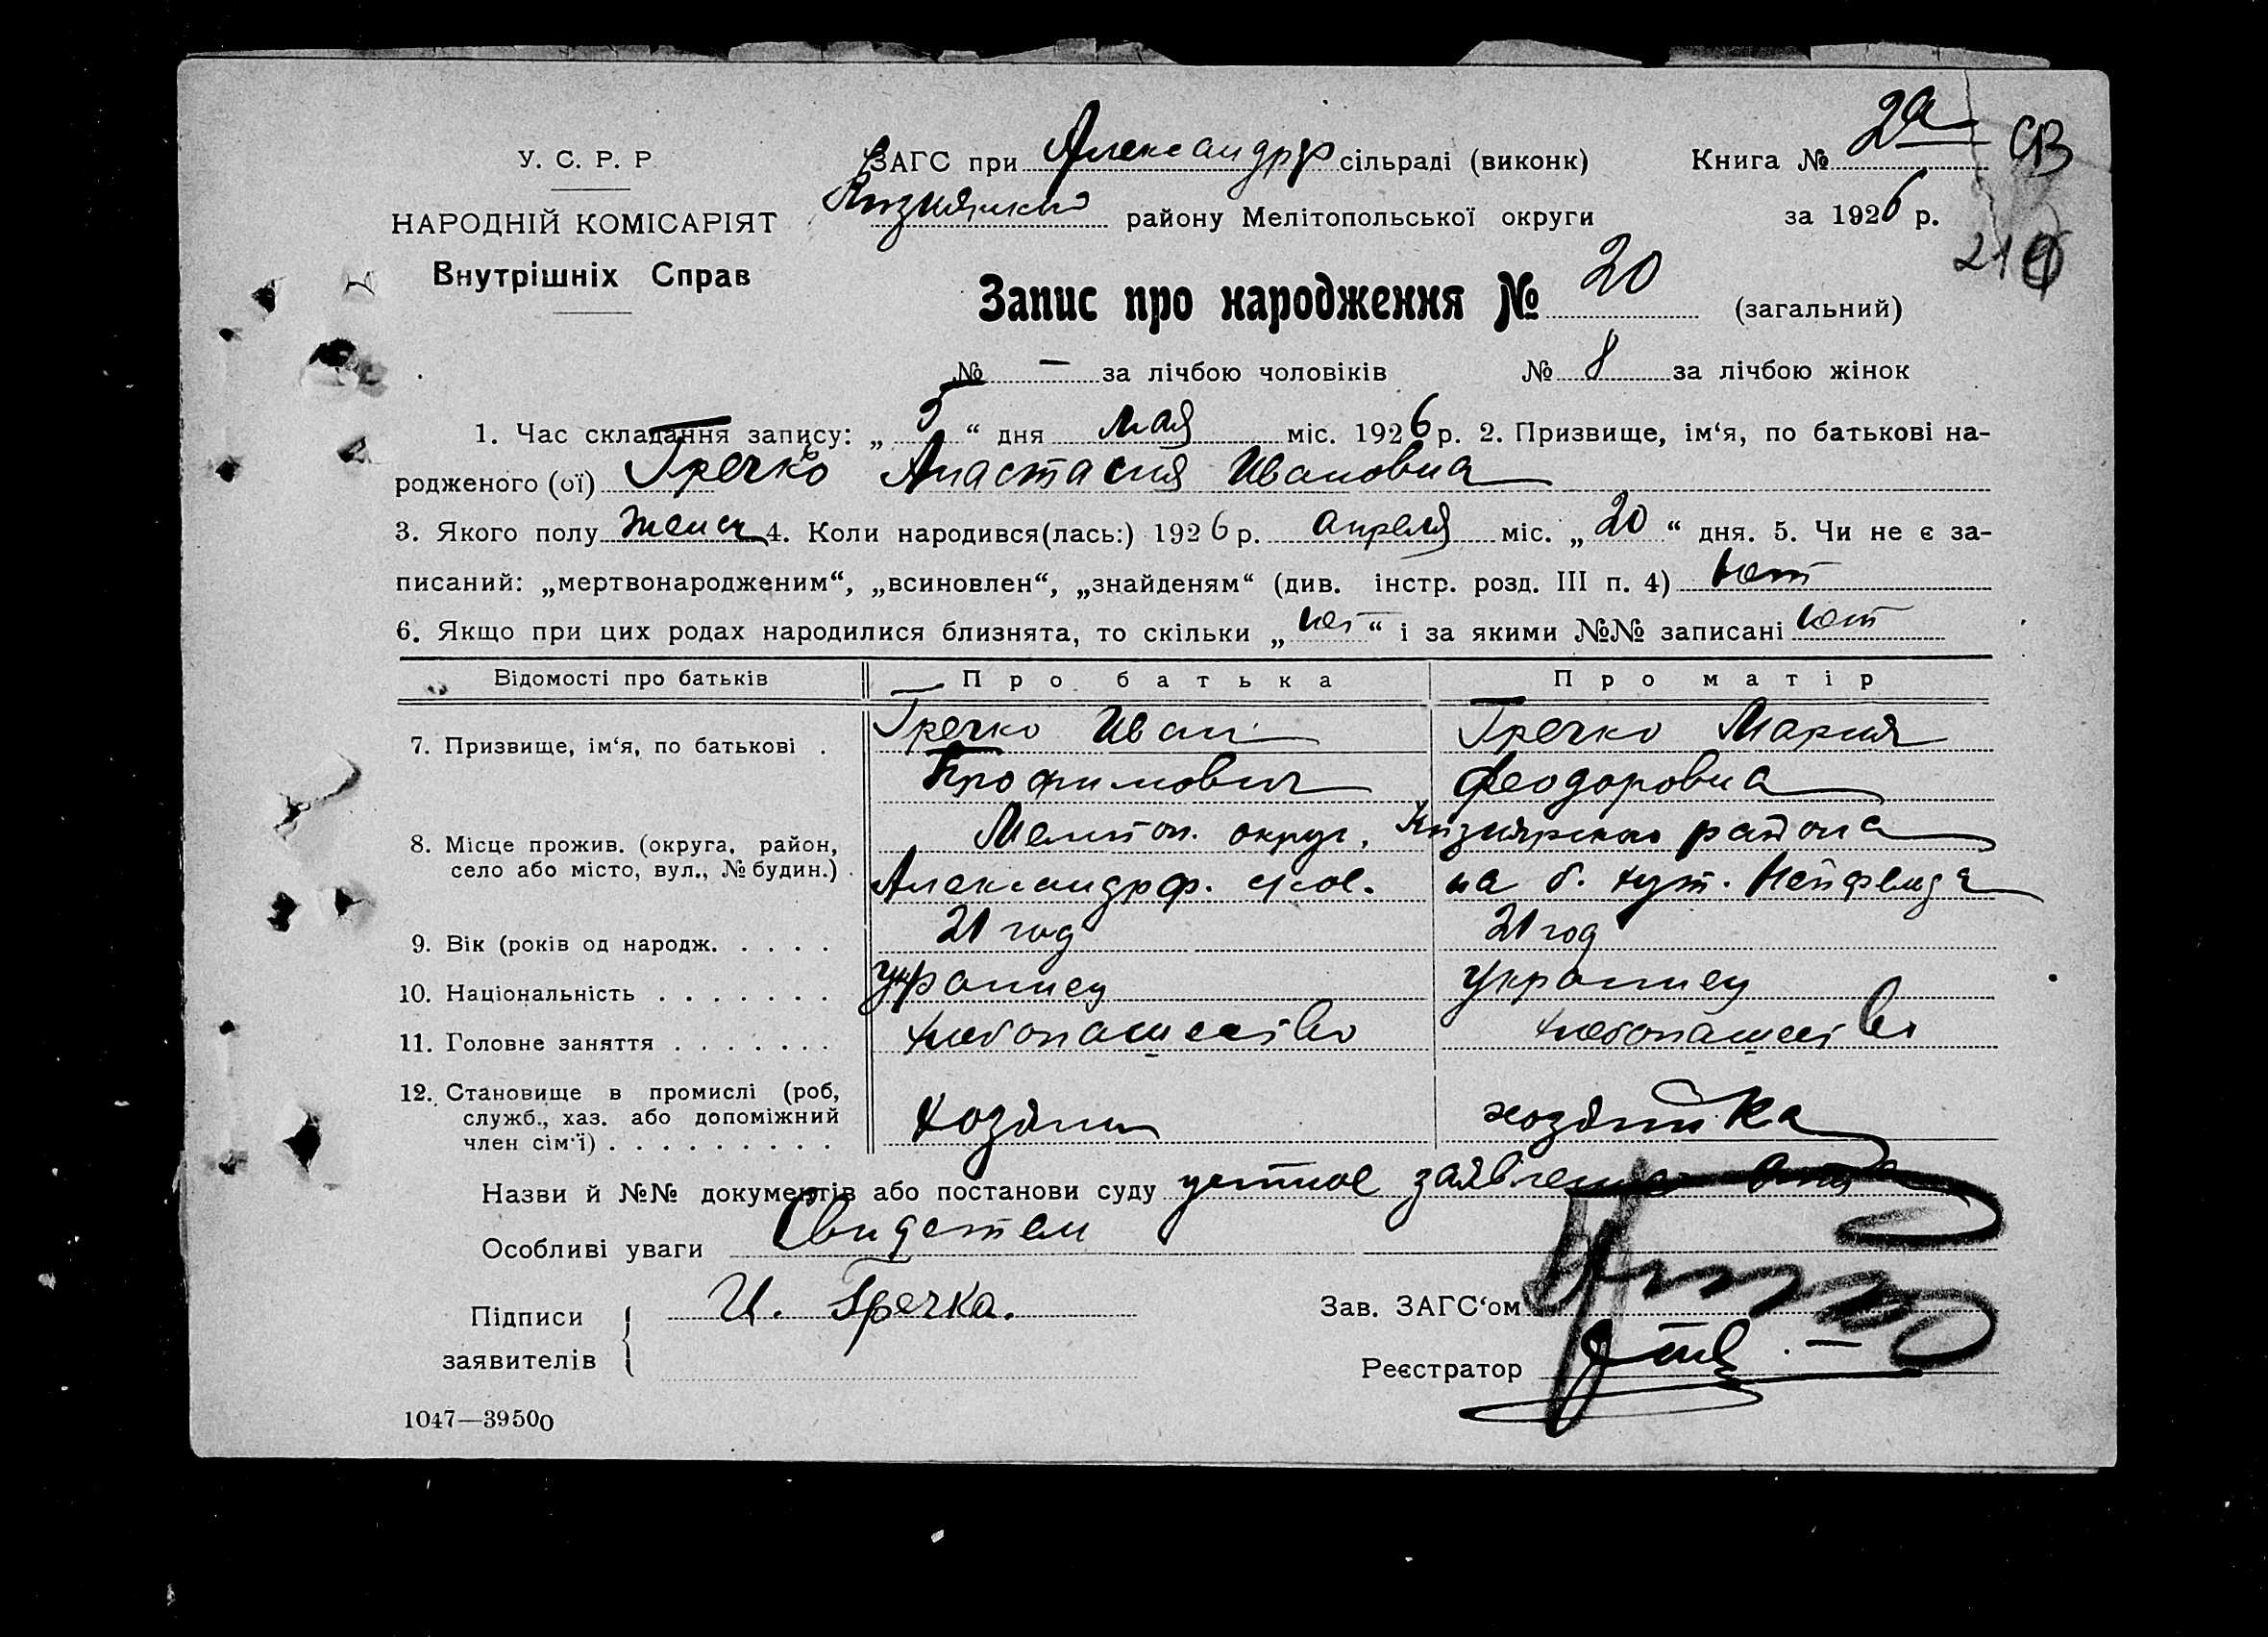 У. С. Р. Р.
НАРОДНІЙ КОМІСАРІЯТ
Внутрішніх Справ
ЗАГС при Александрф сільраді (виконк)
Книга № 2а
СВ
Кизиярский району Мелітопольської округи
за 1926 р.
Запис про народження № 20 (загальний)
№ — за лічбою чоловіків № 8 за лічбою жінок
1. Час складання запису: „ 5 “ дня мая міс. 1926 р. 2. Призвище, ім‘я, по батькові на-
родженого (ої) Гречко Анастасия Ивановна
3. Якого полу женск 4. Коли народився(лась:) 1926 р. апреля міс. „ 20 “ дня. 5. Чи не є за-
писаний: „мертвонародженим“, „всиновлен“, „знайденям“ (див. інстр. розд. III п. 4) нет
6. Якщо при цих родах народилися близнята, то скільки „ нет “ і за якими №№ записані нет
Відомості про батьків Про батька Про матір
7. Призвище, ім‘я, по батькові . Гречко Иван Гречко Мария
Трофимович Феодоровна
8. Місце прожив. (округа, район, Мелитоп. округ, Кизиярского района
село або місто, вул., № будин.) . Александрф. сков. на б. хут. Нейфельда
9. Вік (років од народж. . . . . 21 год 21 год
10. Національність . . . . . . . украинец украинец
11. Головне заняття . . . . . . . хлебопашество хлебопашество
12. Становище в промислі (роб,
служб., хаз. або допоміжний хозяин хозяйка
член сім‘ї) . . . . . . . . .
Назви й №№ документів або постанови суду устное заявление отца
Особливі уваги Свидетели
Підписи И. Гречка.
заявителів
Зав. ЗАГС‘ом
Реєстратор
1047—39500